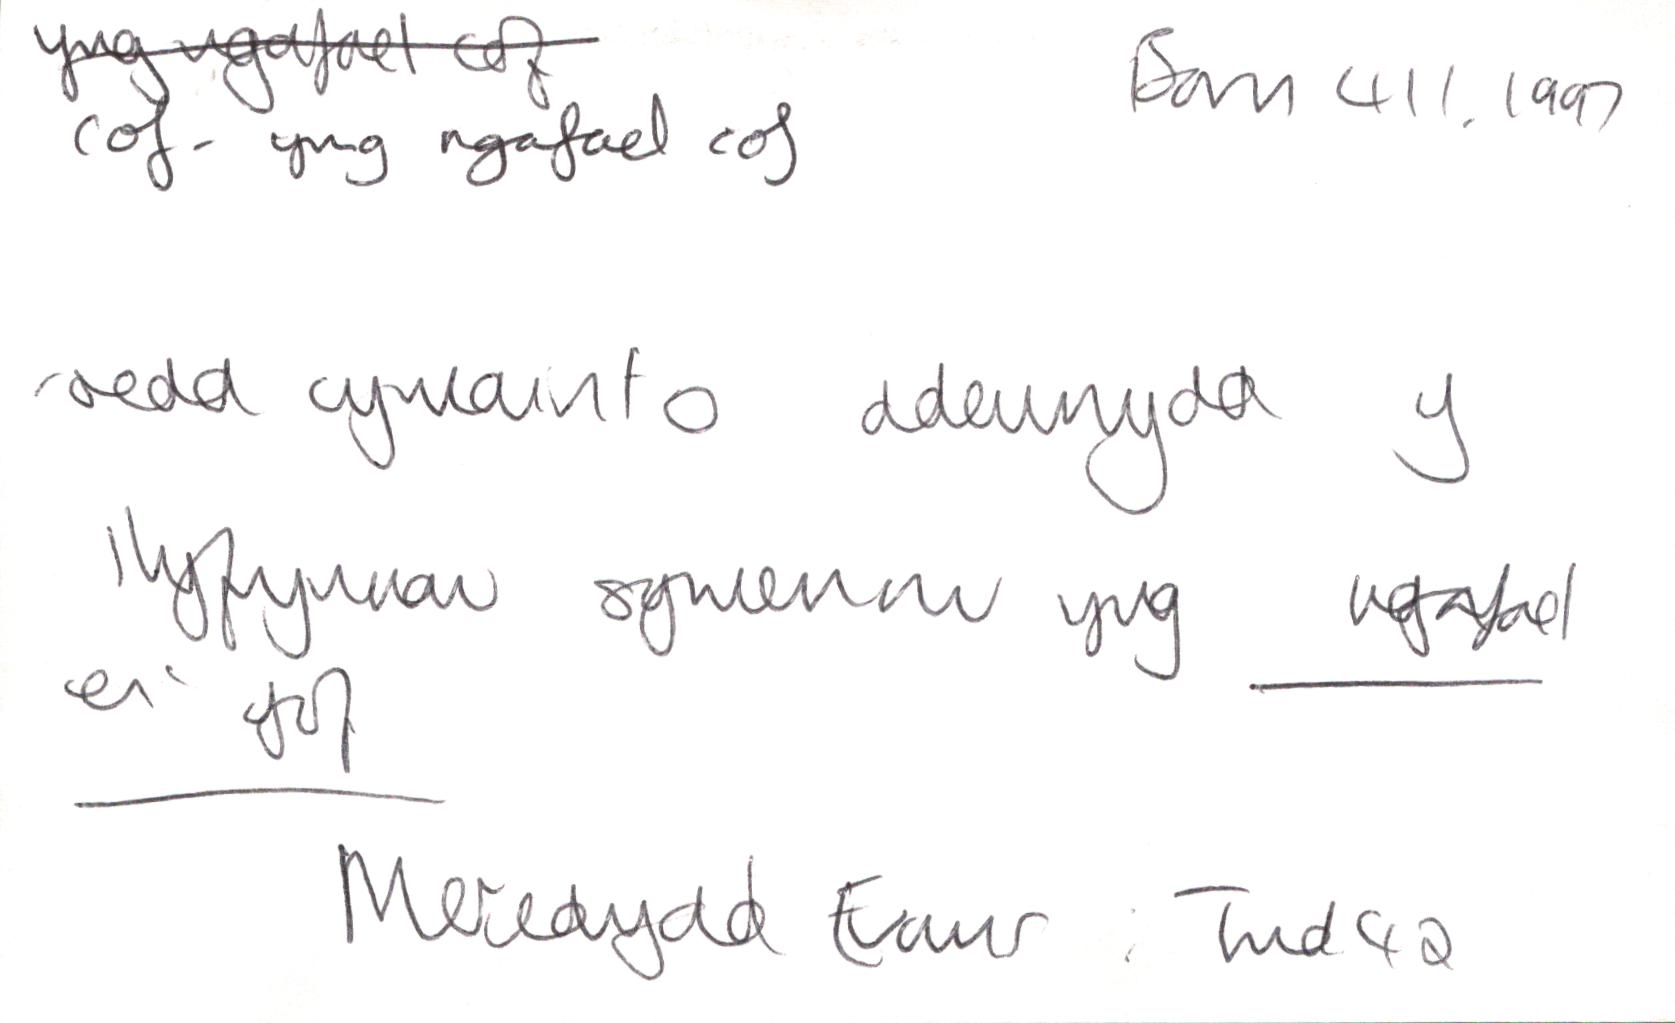 yng ngafael cof
cof - yng ngafael cof
Barn 411, 1997
roedd cymaint o ddeunydd y
llyfrynnau sgwennu yng ngafael
ei gof
Meredydd Evans : Tud 42